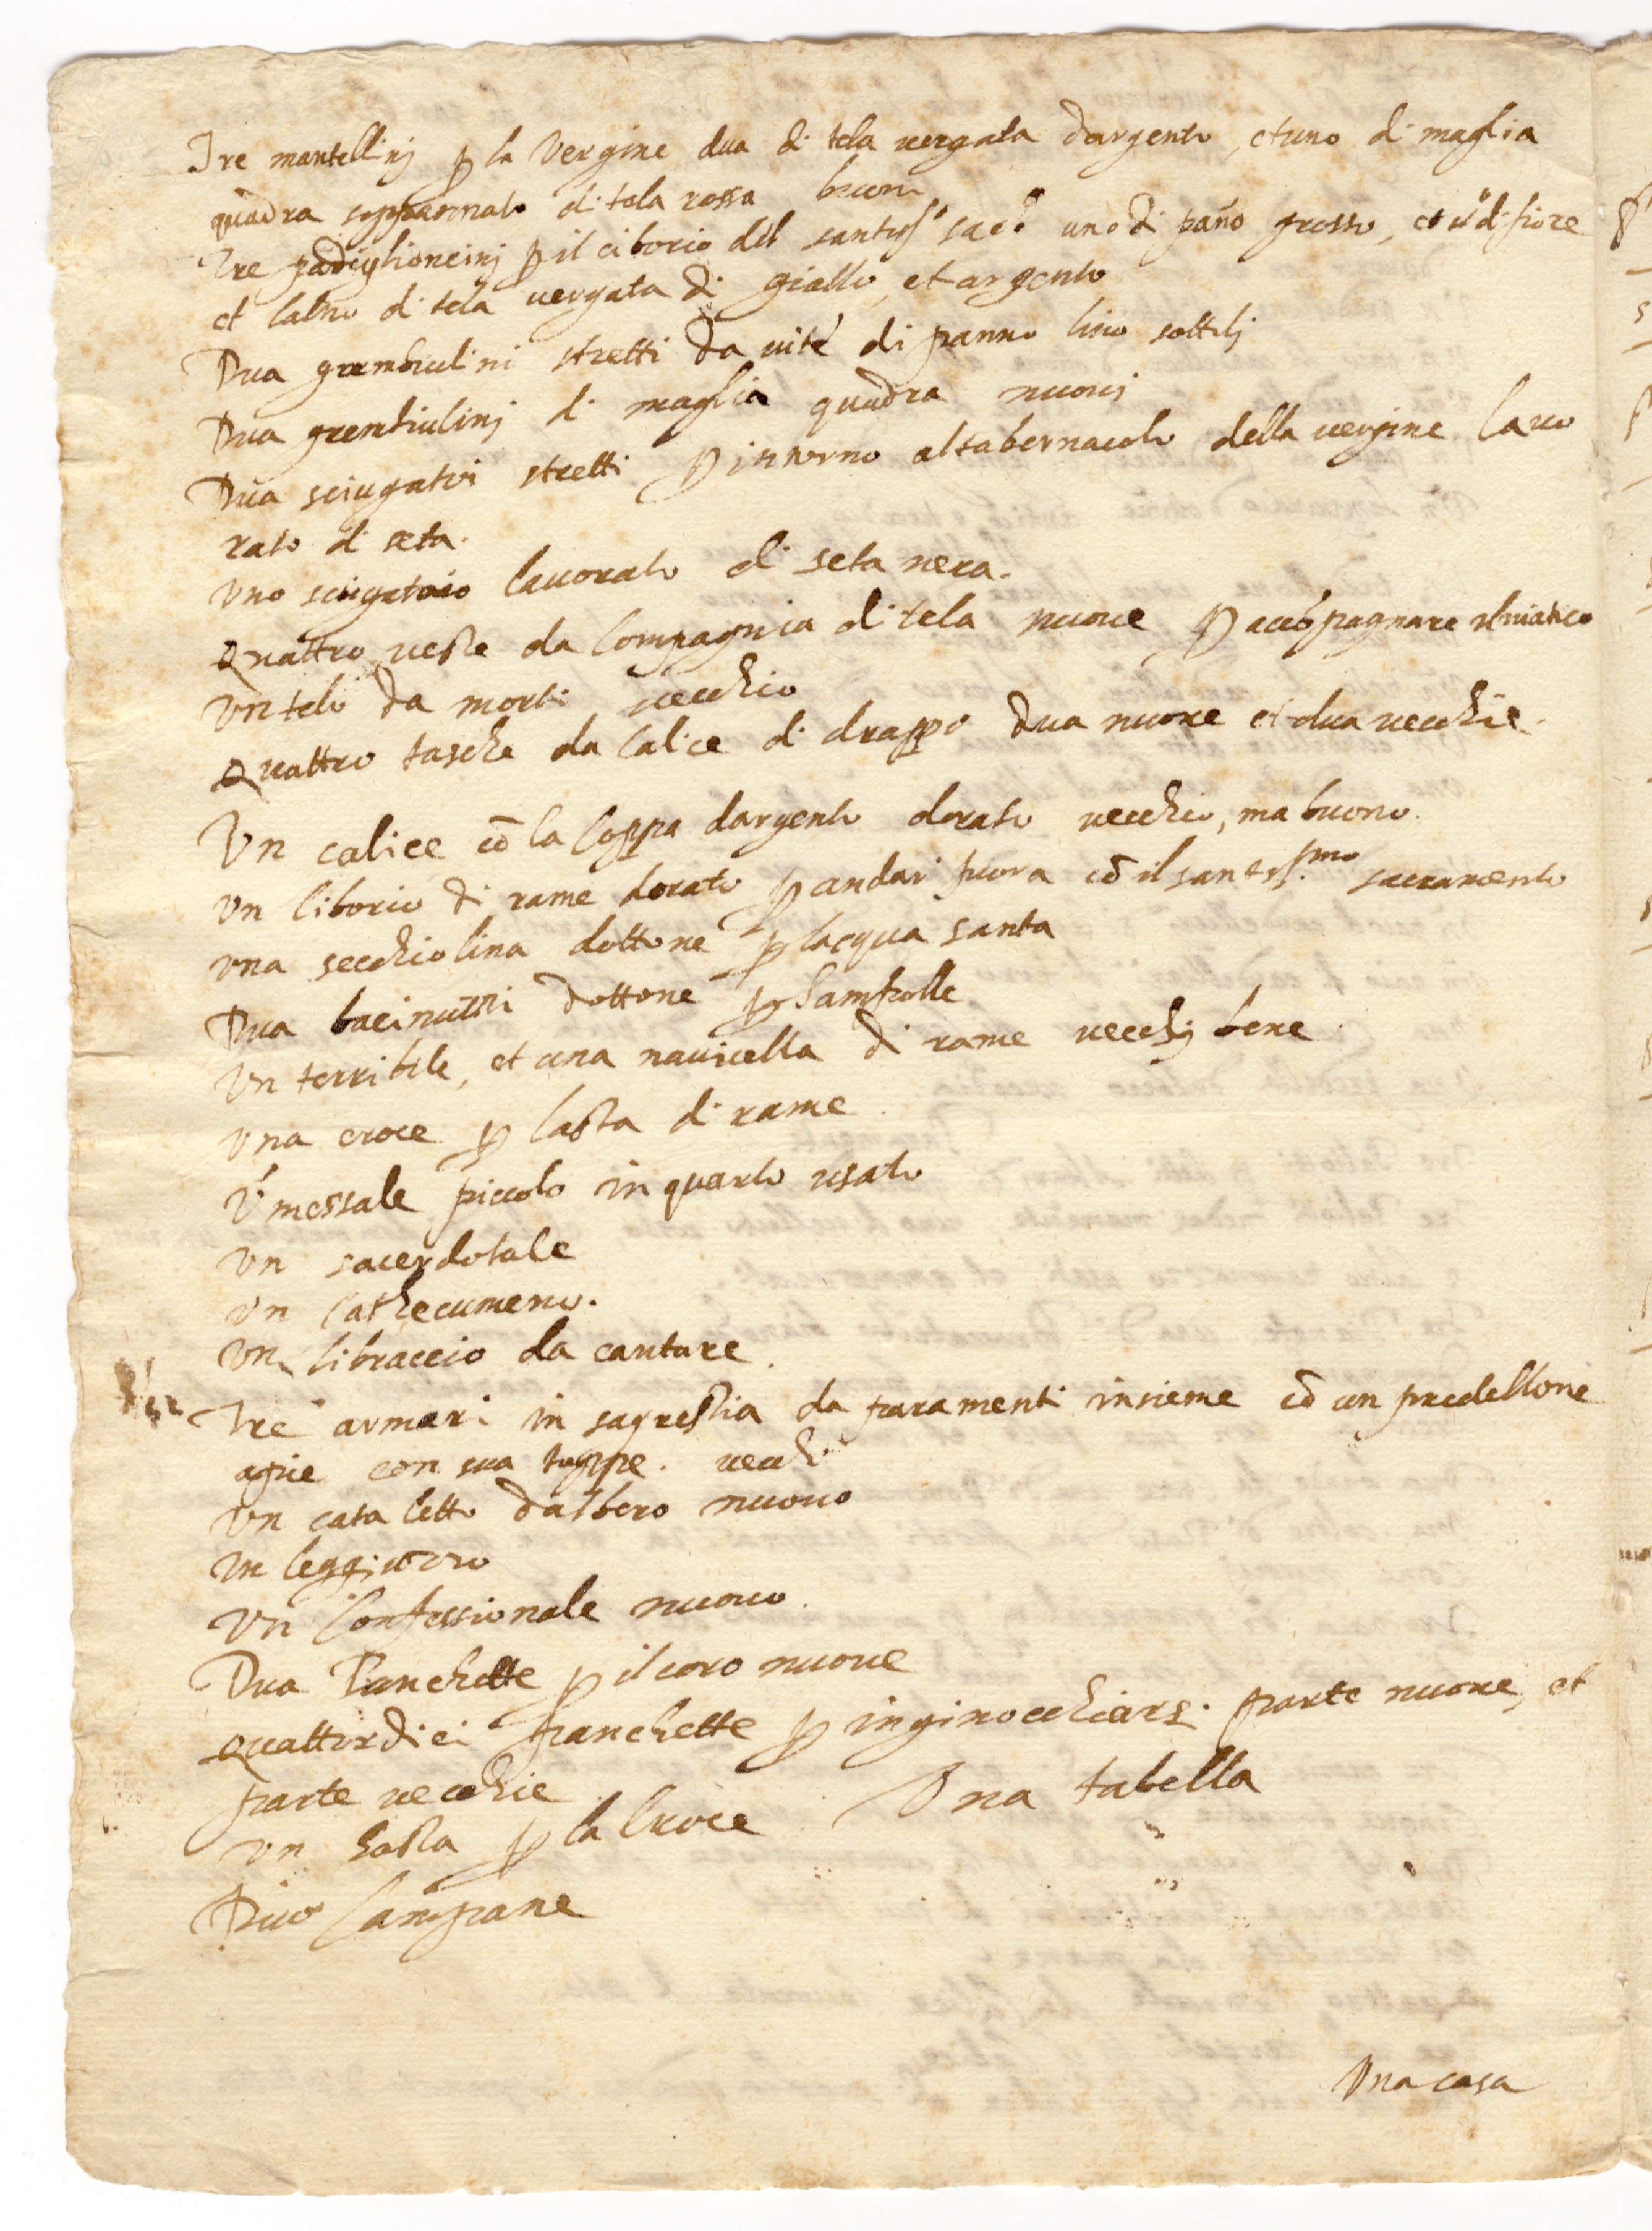 Tre mantellinj p la Vergine dua di tela vergata dargento, et uno di maglia
quadra soppannato di tela rossa buoni
Tre padiglioncinj p il ciborio del santiss.o sac.o uno di pañо grosso, et ũ di fiore
et laltro di tela vergata di giallo, et argento
Dua grembiulini stretti da vite di panno lino sottilj
Dua grembiulinj di maglia quadra nuovi
Dua sciugatoi stretti p intorno al tabernacolo della vergine lavo
rato di seta.
Uno sciugatoio lavorato di seta nera.
Quattro veste da Compagnia di tela nuove p accõpagnare il viatico
Un telo da morti vecchio
Quattro tasche da Calice di drappo dua nuove et dua vecchie.
Un calice cõ la Coppa dargento dorato vecchio, ma buono.
Un Ciborio di rame dorato p andar fuora cõ il santiss.mo sacramento
Una secchiolina dottone p lacqua santa
Dua bacinuzzi dottone p lampolle
Un terribile, et una navicella di rame vecchj bene
Una croce p lasta di rame
Ũ messale piccolo in quarto usato
Un sacerdotale
Un Cathecumeno.
Un libraccio da cantare
Tre armari in sagrestia da paramenti insieme cõ un predellone
apie con sua toppe. vecchi
Un cataletto dalbero nuovo
Un leggivoro
Un Confessionale nuovo.
Dua Panchette p il coro nuove
Quattordici panchette p inginocchiarsi parte nuove, et
parte vecchie
Un hasta p la Croce Una tabella
Duo Campane
Una casa